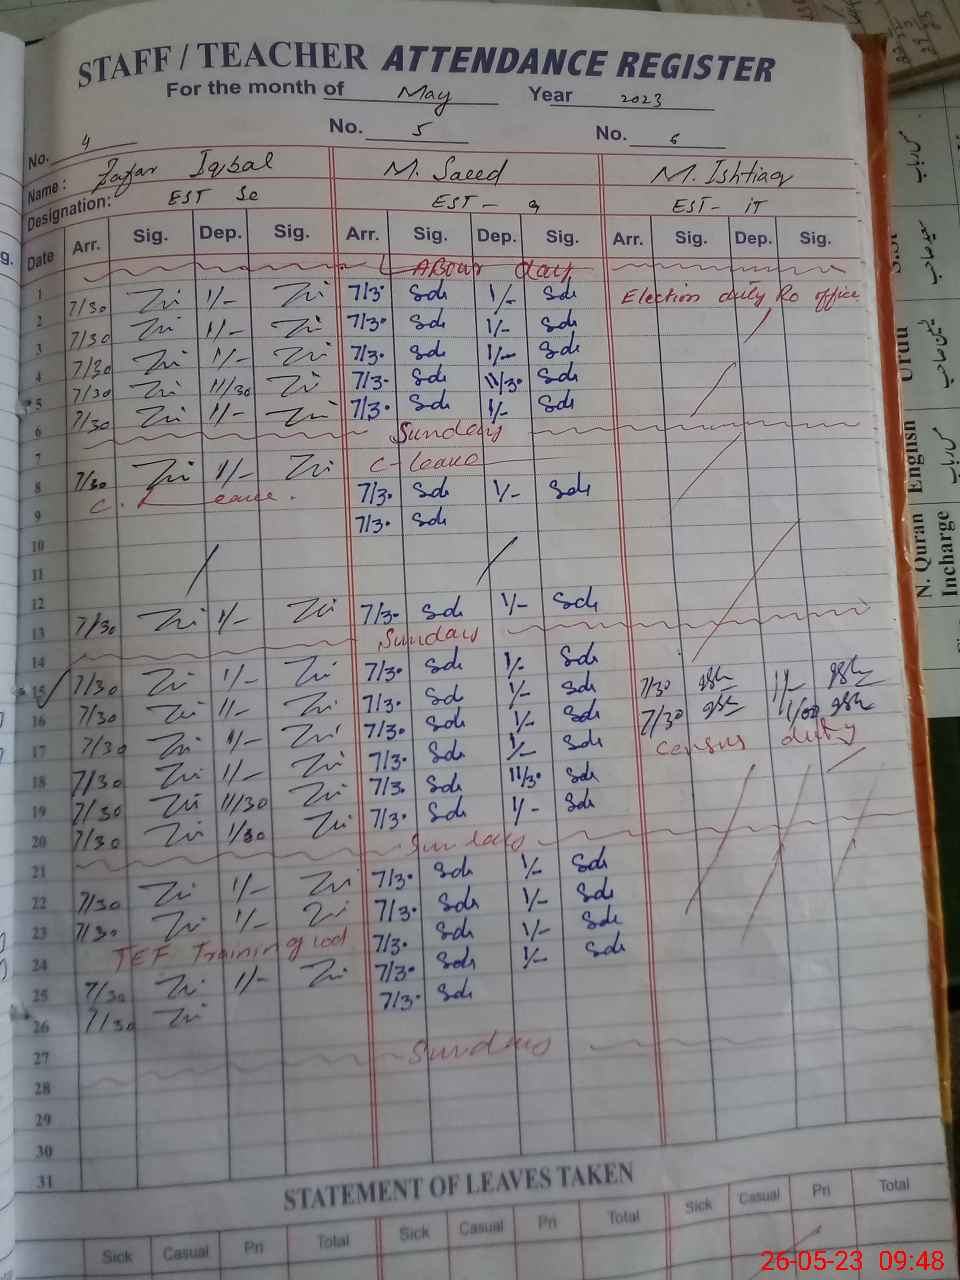 STAFF / TEACHER ATTENDANCE REGISTER
For the month of May Year 2023
No. 4 No. 5 No. 6
Name : Zafar Iqbal M. Saeed M. Ishtiaq
Designation: EST Se EST - g EST - IT
Date Arr. Sig. Dep. Sig. Arr. Sig. Dep. Sig. Arr. Sig. Dep. Sig.
1 Labour day
2 7/30 1/- 7/30 Sd 1/- Sd Election duty Ro office
3 7/30 1/- 7/30 Sd 1/- Sd
4 7/30 1/- 7/30 Sd 1/- Sd
5 7/30 11/30 7/30 Sd 11/30 Sd
6 7/30 1/- 7/30 Sd 1/- Sd
7 Sunday
8 7/30 1/- C-Leave
9 C. Leave. 7/30 Sd 1/- Sd
10 7/30 Sd
11
12
13 7/30 1/- 7/30 Sd 1/- Sd
14 Sunday
15 7/30 1/- 7/30 Sd 1/- Sd 7/30 1/-
16 7/30 1/- 7/30 Sd 1/- Sd 7/30 1/00
17 7/30 1/- 7/30 Sd 1/- Sd Census duty
18 7/30 1/- 7/30 Sd 1/- Sd
19 7/30 11/30 7/30 Sd 11/30 Sd
20 7/30 1/30 7/30 Sd 1/- Sd
21 Sunday
22 7/30 1/- 7/30 Sd 1/- Sd
23 7/30 1/- 7/30 Sd 1/- Sd
24 TEF Training 7/30 Sd 1/- Sd
25 7/30 1/- 7/30 Sd 1/- Sd
26 7/30 7/30 Sd
27
28 Sunday
29
30
31
STATEMENT OF LEAVES TAKEN
Sick Casual Pri Total Sick Casual Pri Total Sick Casual Pri Total
Urdu
English
N. Quran
Incharge
26-05-23 09:48